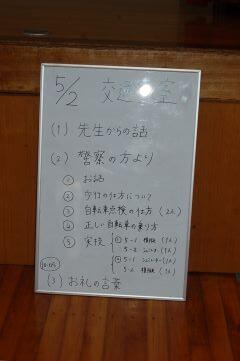 5/2 交通教室
(1) 先生からの話
(2) 警察の方より
① お話
② 歩行の仕方について
③ 自転車点検の仕方 (2人)
④ 正しい自転車の乗り方
⑤ 実技
5-1 模擬 (1人)
5-2
5-1
5-2 模擬 (1人)
(3) お礼の言葉